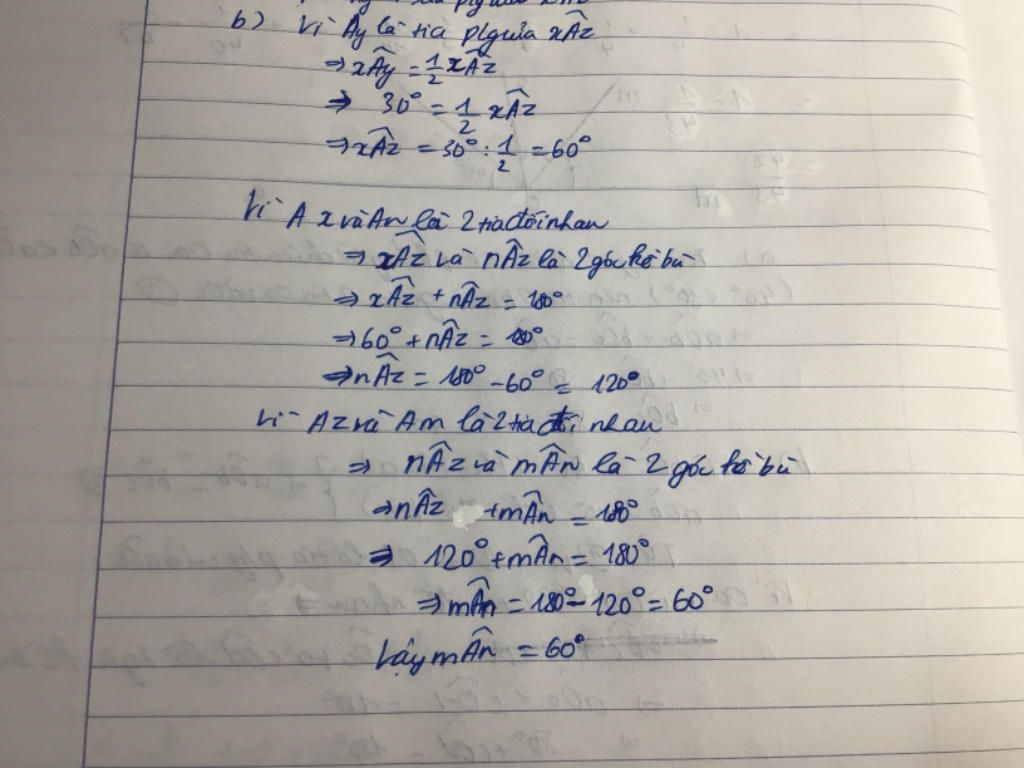 b) Vì Ay là tia p/giữa xÂz
⇒ xÂy = 1/2 xÂz
⇒ 30° = 1/2 xÂz
⇒ xÂz = 30° : 1/2 = 60°
Vì Ax và An là 2 tia đối nhau
⇒ xÂz và nÂz là 2 góc kề bù
⇒ xÂz + nÂz = 180°
⇒ 60° + nÂz = 180°
⇒ nÂz = 180° - 60° = 120°
Vì Az và Am là 2 tia đối nhau
⇒ nÂz và mÂn là 2 góc kề bù
⇒ nÂz + mÂn = 180°
⇒ 120° + mÂn = 180°
⇒ mÂn = 180° - 120° = 60°
Vậy mÂn = 60°